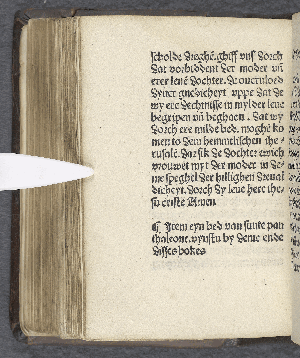 scholde dreghē. ghiff vns dorch
dat vorbiddent der moder vn̄
erer leuē dochter. De ouerulod
dyner gnedicheyt. vppe dat de
wy ere dechtnisse in mylder leue
begripen vn̄ beghaen. Dat wy
dorch ere milde bed. moghē ko
men to dem hemmelschen ihe
rusalē. Dar sik de dochter ewich
vrouwet myt der moder in de
me speghel der hillighen dreual
dicheyt. Dorch dy leue here ihe
su criste Amen

¶ Item eyn bed van sunte pan
thaleone. vynstu by deme ende
disses bokes